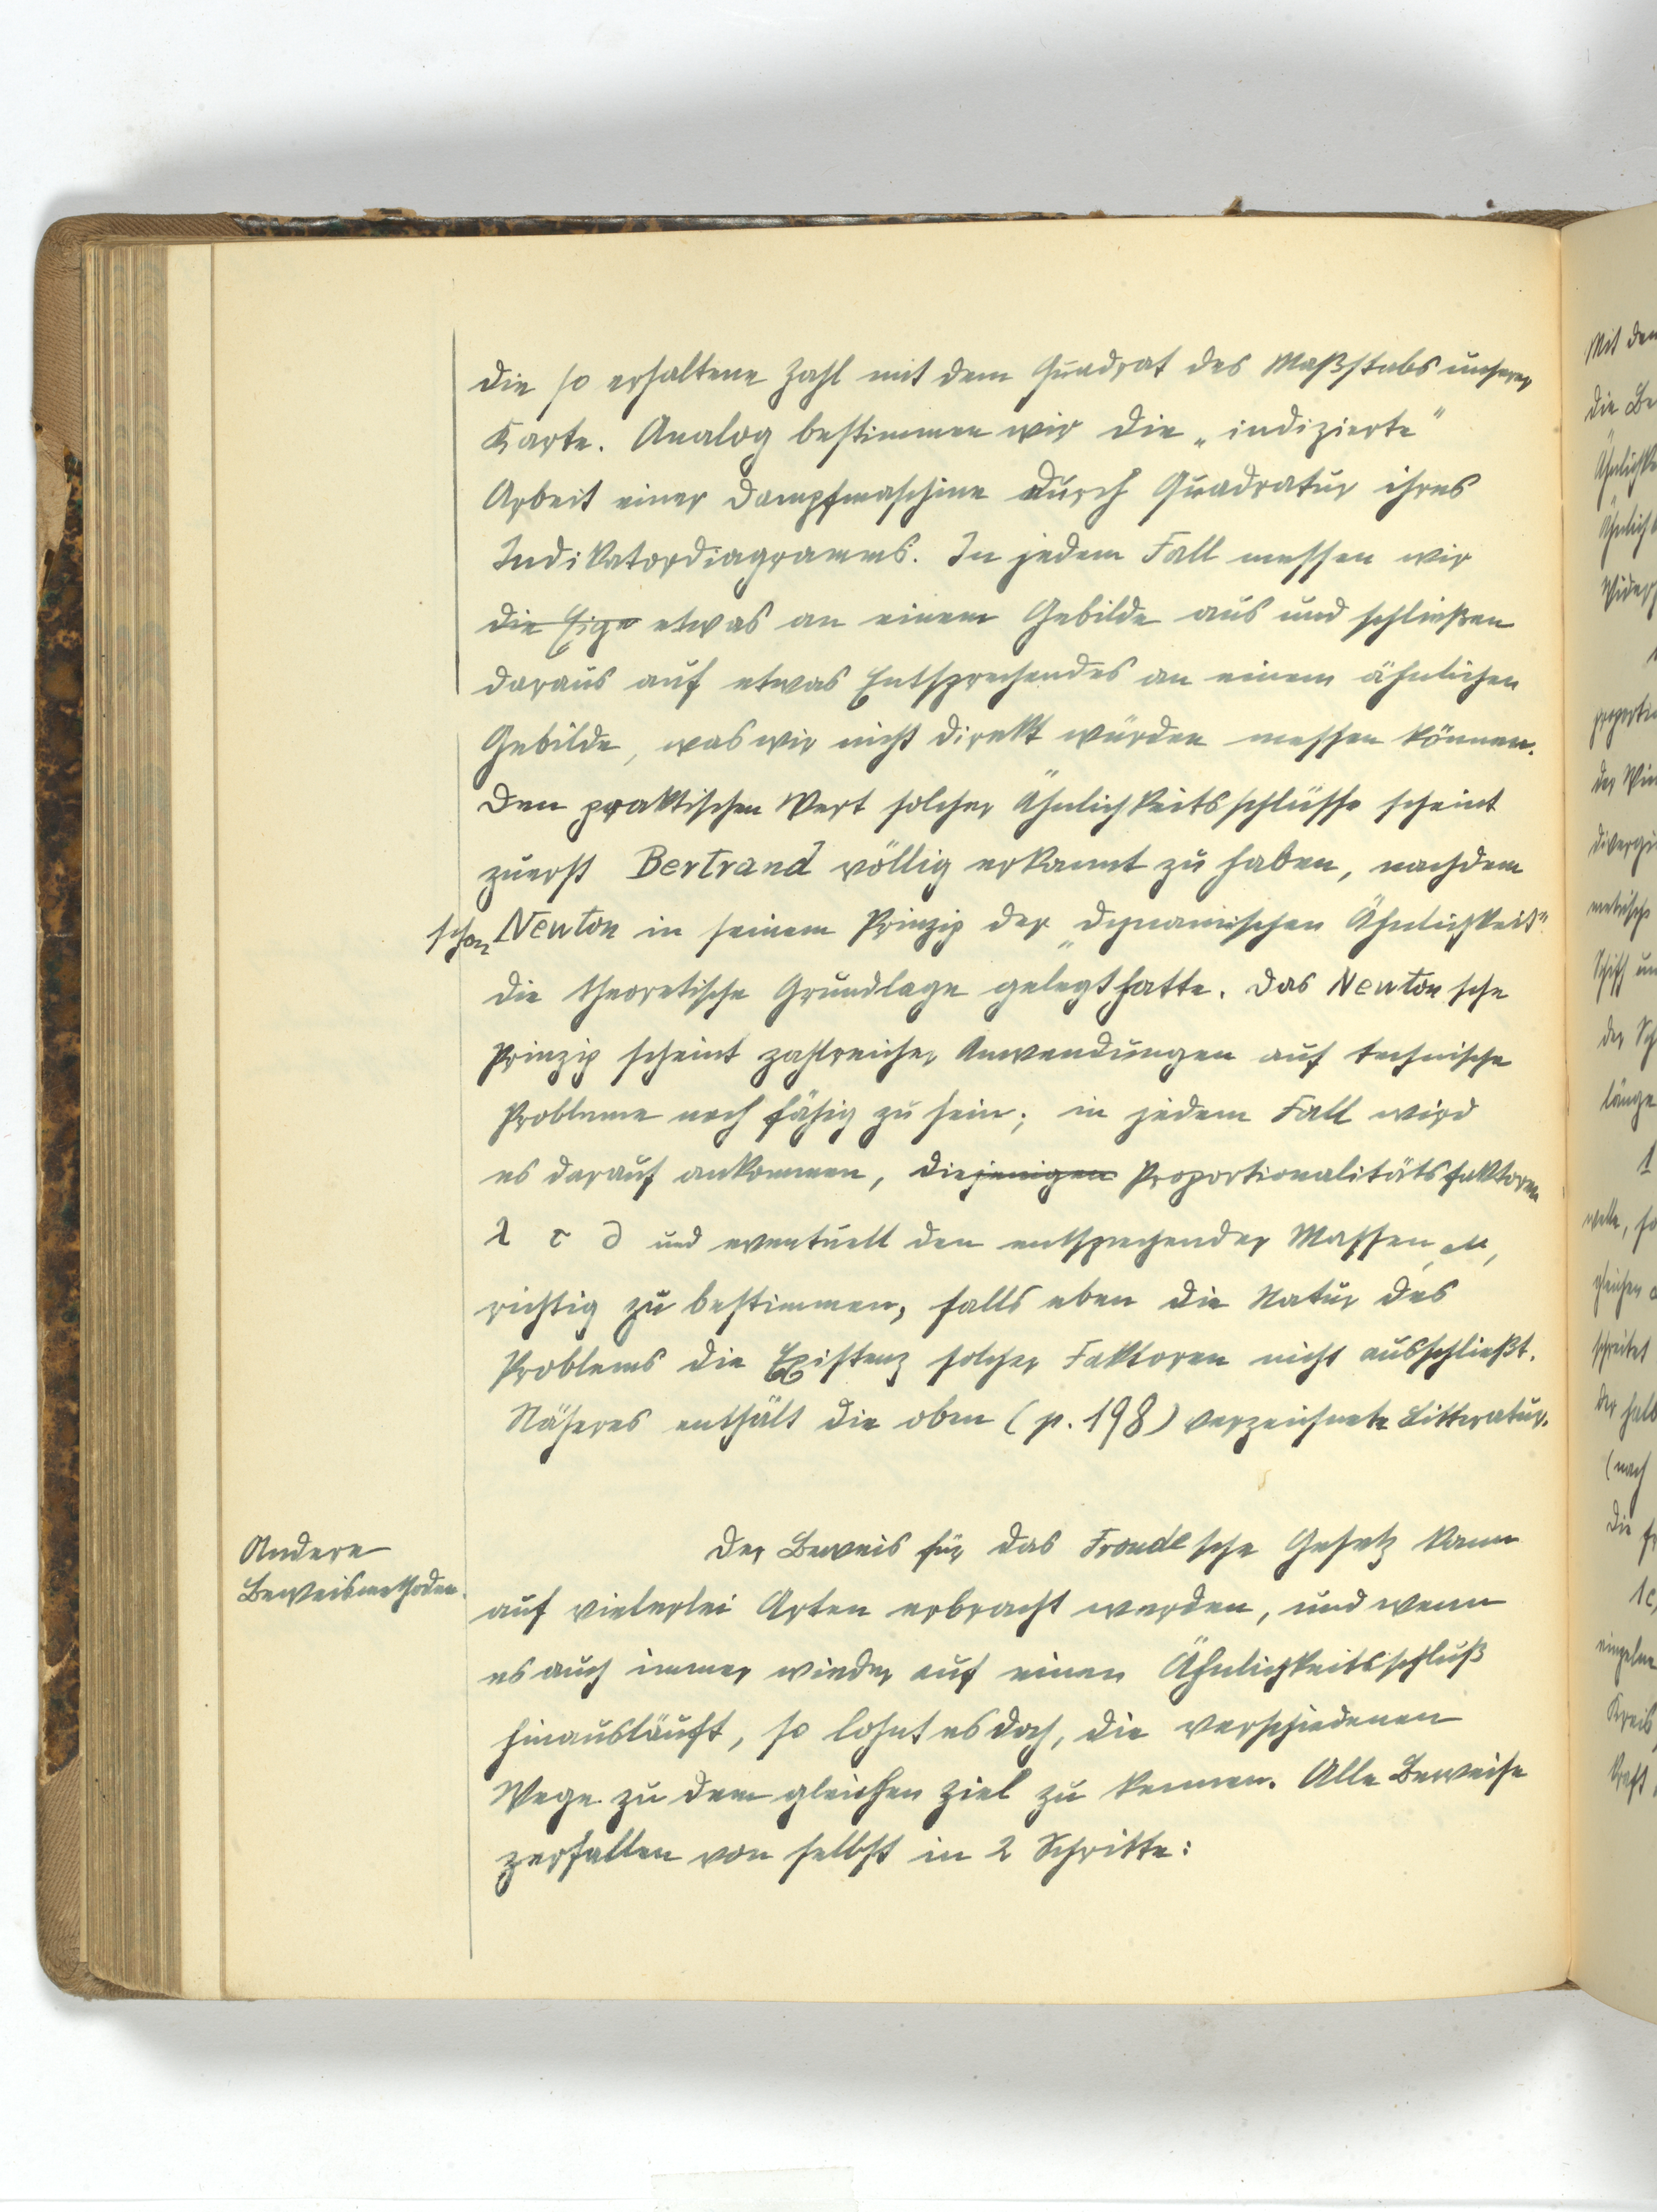 die so erhaltene Zahl mit dem Quadrat des Maßstabs unserer
Karte. Analog bestimmen wir die „indizierte“
Arbeit einer Dampfmaschine durch Quadratur ihres
Indikatordiagramms. In jedem Fall messen wir
die Eige etwas an einem Gebilde aus und schließen
daraus auf etwas Entsprechendes an einem ähnlichen
Gebilde, was wir nicht direkt würden messen können.
Den praktischen Wert solcher Ähnlichkeitsschlüsse scheint
zuerst Bertrand völlig erkannt zu haben, nachdem
schon Newton in seinem Prinzip der „dynamischen Ähnlichkeit“
die theoretische Grundlage gelegt hatte. Das Newtonsche
Prinzip scheint zahlreicher Anwendungen auf technische
Probleme noch fähig zu sein; in jedem Fall wird
es darauf ankommen, diejenigen Proportionalitätsfaktoren
λ τ ∂ und eventuell den entsprechender Massen, M,
richtig zu bestimmen, falls eben die Natur des
Problems die Existenz solcher Faktoren nicht ausschließt.
Näheres enthält die oben (p. 198) verzeichnete Litteratur.
Andere
Beweismethoden.
Der Beweis für das Froudesche Gesetz kann
auf vielerlei Arten erbracht werden, und wenn
es auch immer wieder auf einen Ähnlichkeitsschluß
hinausläuft, so lohnt es doch, die verschiedenen
Wege zu dem gleichen Ziel zu kennen. Alle Beweise
zerfallen von selbst in 2 Schritte:
Mit den
die
Ähnlichke
der
Schiff
länge
1
gleichen
schreitet
der halb
(nach
die
1c,
einzelne
Kreis
Kraft